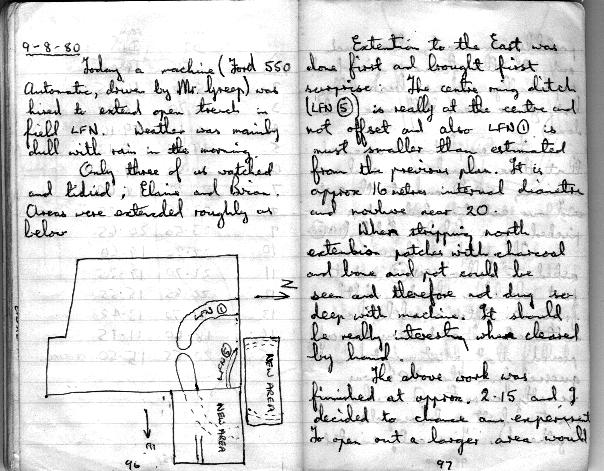 9-8-80
Today a machine (Ford 550
Automatic, driven by Mr. Greep) was
hired to extend open trench in
field LFN. Weather was mainly
dull with rain in the morning
Only three of us watched
and tidied; Elaine and Brian.
Areas were extended roughly as
below
N
LFN ①
LFN ⑤
NEW AREA
NEW AREA
E
96
Extention to the East was
done first and brought first
surprise: The centre ring ditch
(LFN ⑤) is really at the centre and
not offset and also LFN ① is
must smaller than estimated
from the previous plan. It is
approx 16 metres internal diametre
and nowhere near 20.
When stripping north
extenbion patches with charcoal
and bone and pot could be
seen and therefore not dug so
deep with machine. It should
be really interesting when cleared
by hand.
The above work was
finished at approx. 2.15 and I
decided to chance an experiment
To open out a larger area would
97